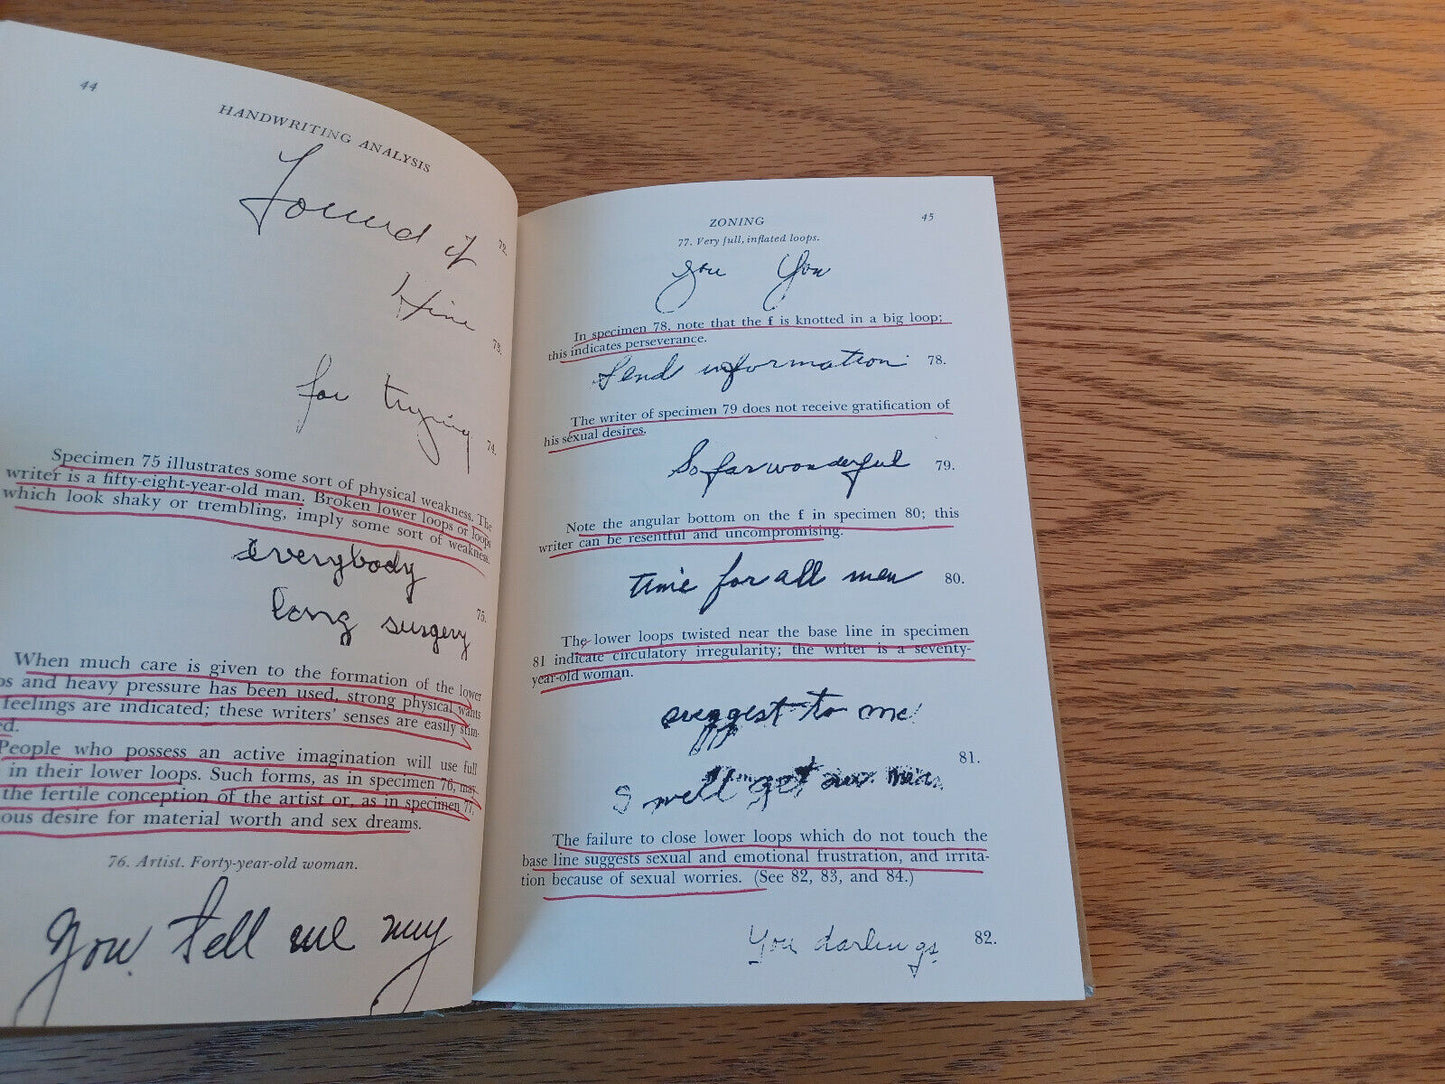 44
HANDWRITING ANALYSIS
72.
73.
for trying
74.
Specimen 75 illustrates some sort of physical weakness. The
writer is a fifty-eight-year-old man. Broken lower loops or loops
which look shaky or trembling, imply some sort of weakness.
everybody
75.
long surgery
When much care is given to the formation of the lower
ps and heavy pressure has been used, strong physical wants
feelings are indicated; these writers' senses are easily stim-
ed.
People who possess an active imagination will use full
in their lower loops. Such forms, as in specimen 76, may
the fertile conception of the artist or, as in specimen 77,
ous desire for material worth and sex dreams.
76. Artist. Forty-year-old woman.
you tell me my
ZONING
45
77. Very full, inflated loops.
you You
In specimen 78, note that the f is knotted in a big loop;
this indicates perseverance.
Send information 78.
The writer of specimen 79 does not receive gratification of
his sexual desires.
So far wonderful 79.
Note the angular bottom on the f in specimen 80; this
writer can be resentful and uncompromising.
time for all men 80.
The lower loops twisted near the base line in specimen
81 indicate circulatory irregularity; the writer is a seventy-
year-old woman.
suggest to me
81.
I will get
The failure to close lower loops which do not touch the
base line suggests sexual and emotional frustration, and irrita-
tion because of sexual worries. (See 82, 83, and 84.)
You darlings 82.